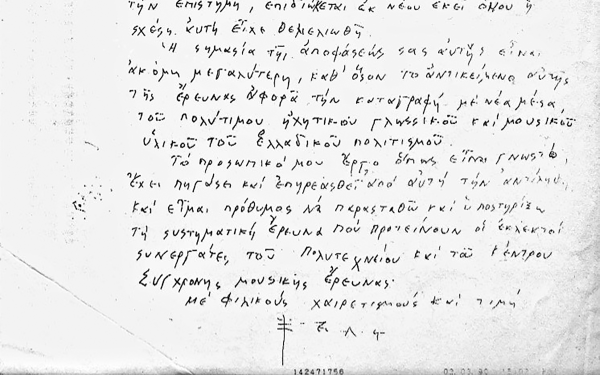 τὴν ἐπιστήμη, ἐπιδιώκεται ἐκ νέου ἐκεῖ ὅπου ἡ
σχέση αὐτὴ εἶχε θεμελιωθῆ.
Ἡ σημασία τῆς ἀποφάσεώς σας αὐτῆς εἶναι
ἀκόμη μεγαλύτερη, καθ' ὅσον τὸ ἀντικείμενο αὐτῆς
τῆς ἔρευνας ἀφορᾶ τὴν καταγραφή, μὲ νέα μέσα,
τοῦ πολύτιμου ἠχητικοῦ γλωσσικοῦ καὶ μουσικοῦ
ὑλικοῦ τοῦ ἑλλαδικοῦ πολιτισμοῦ.
Τὸ προσωπικό μου ἔργο ὅπως εἶναι γνωστό,
ἔχει πηγάσει καὶ ἐπηρεασθεῖ ἀπὸ αὐτὴ τὴν ἀντίληψη
καὶ εἶμαι πρόθυμος νὰ παρασταθῶ καὶ ὑποστηρίξω
τὴ συστηματικὴ ἔρευνα ποὺ προτείνουν οἱ ἐκλεκτοὶ
συνεργάτες τοῦ Πολυτεχνείου καὶ τοῦ Κέντρου
Σύγχρονης Μουσικῆς Ἔρευνας.
Μὲ φιλικοὺς χαιρετισμοὺς καὶ τιμὴ
142471756